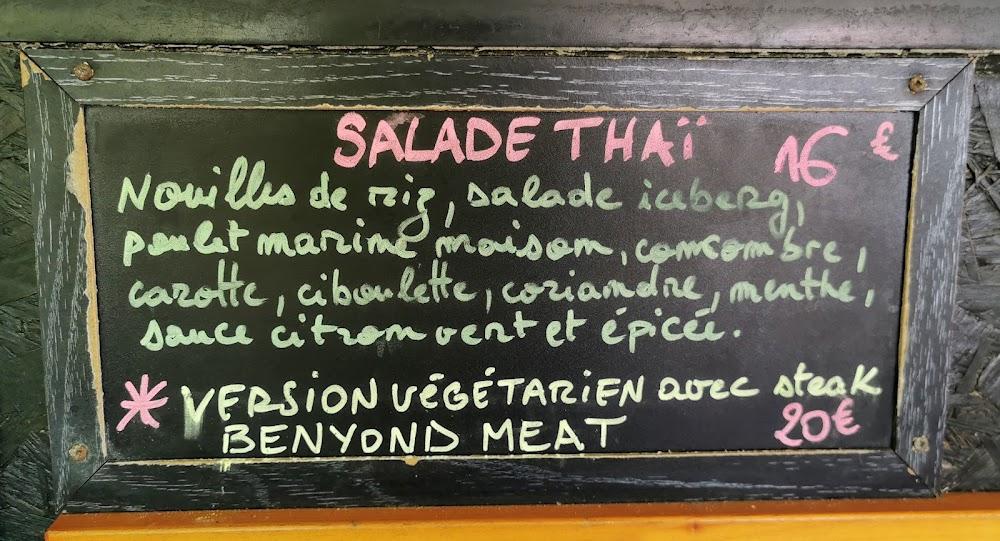 SALADE THAÏ 16 €
Nouilles de riz, salade iceberg,
poulet mariné maison, concombre,
carotte, ciboulette, coriandre, menthe,
sauce citron vert et épicée.
* VERSION VÉGÉTARIEN avec steak
BENYOND MEAT 20€